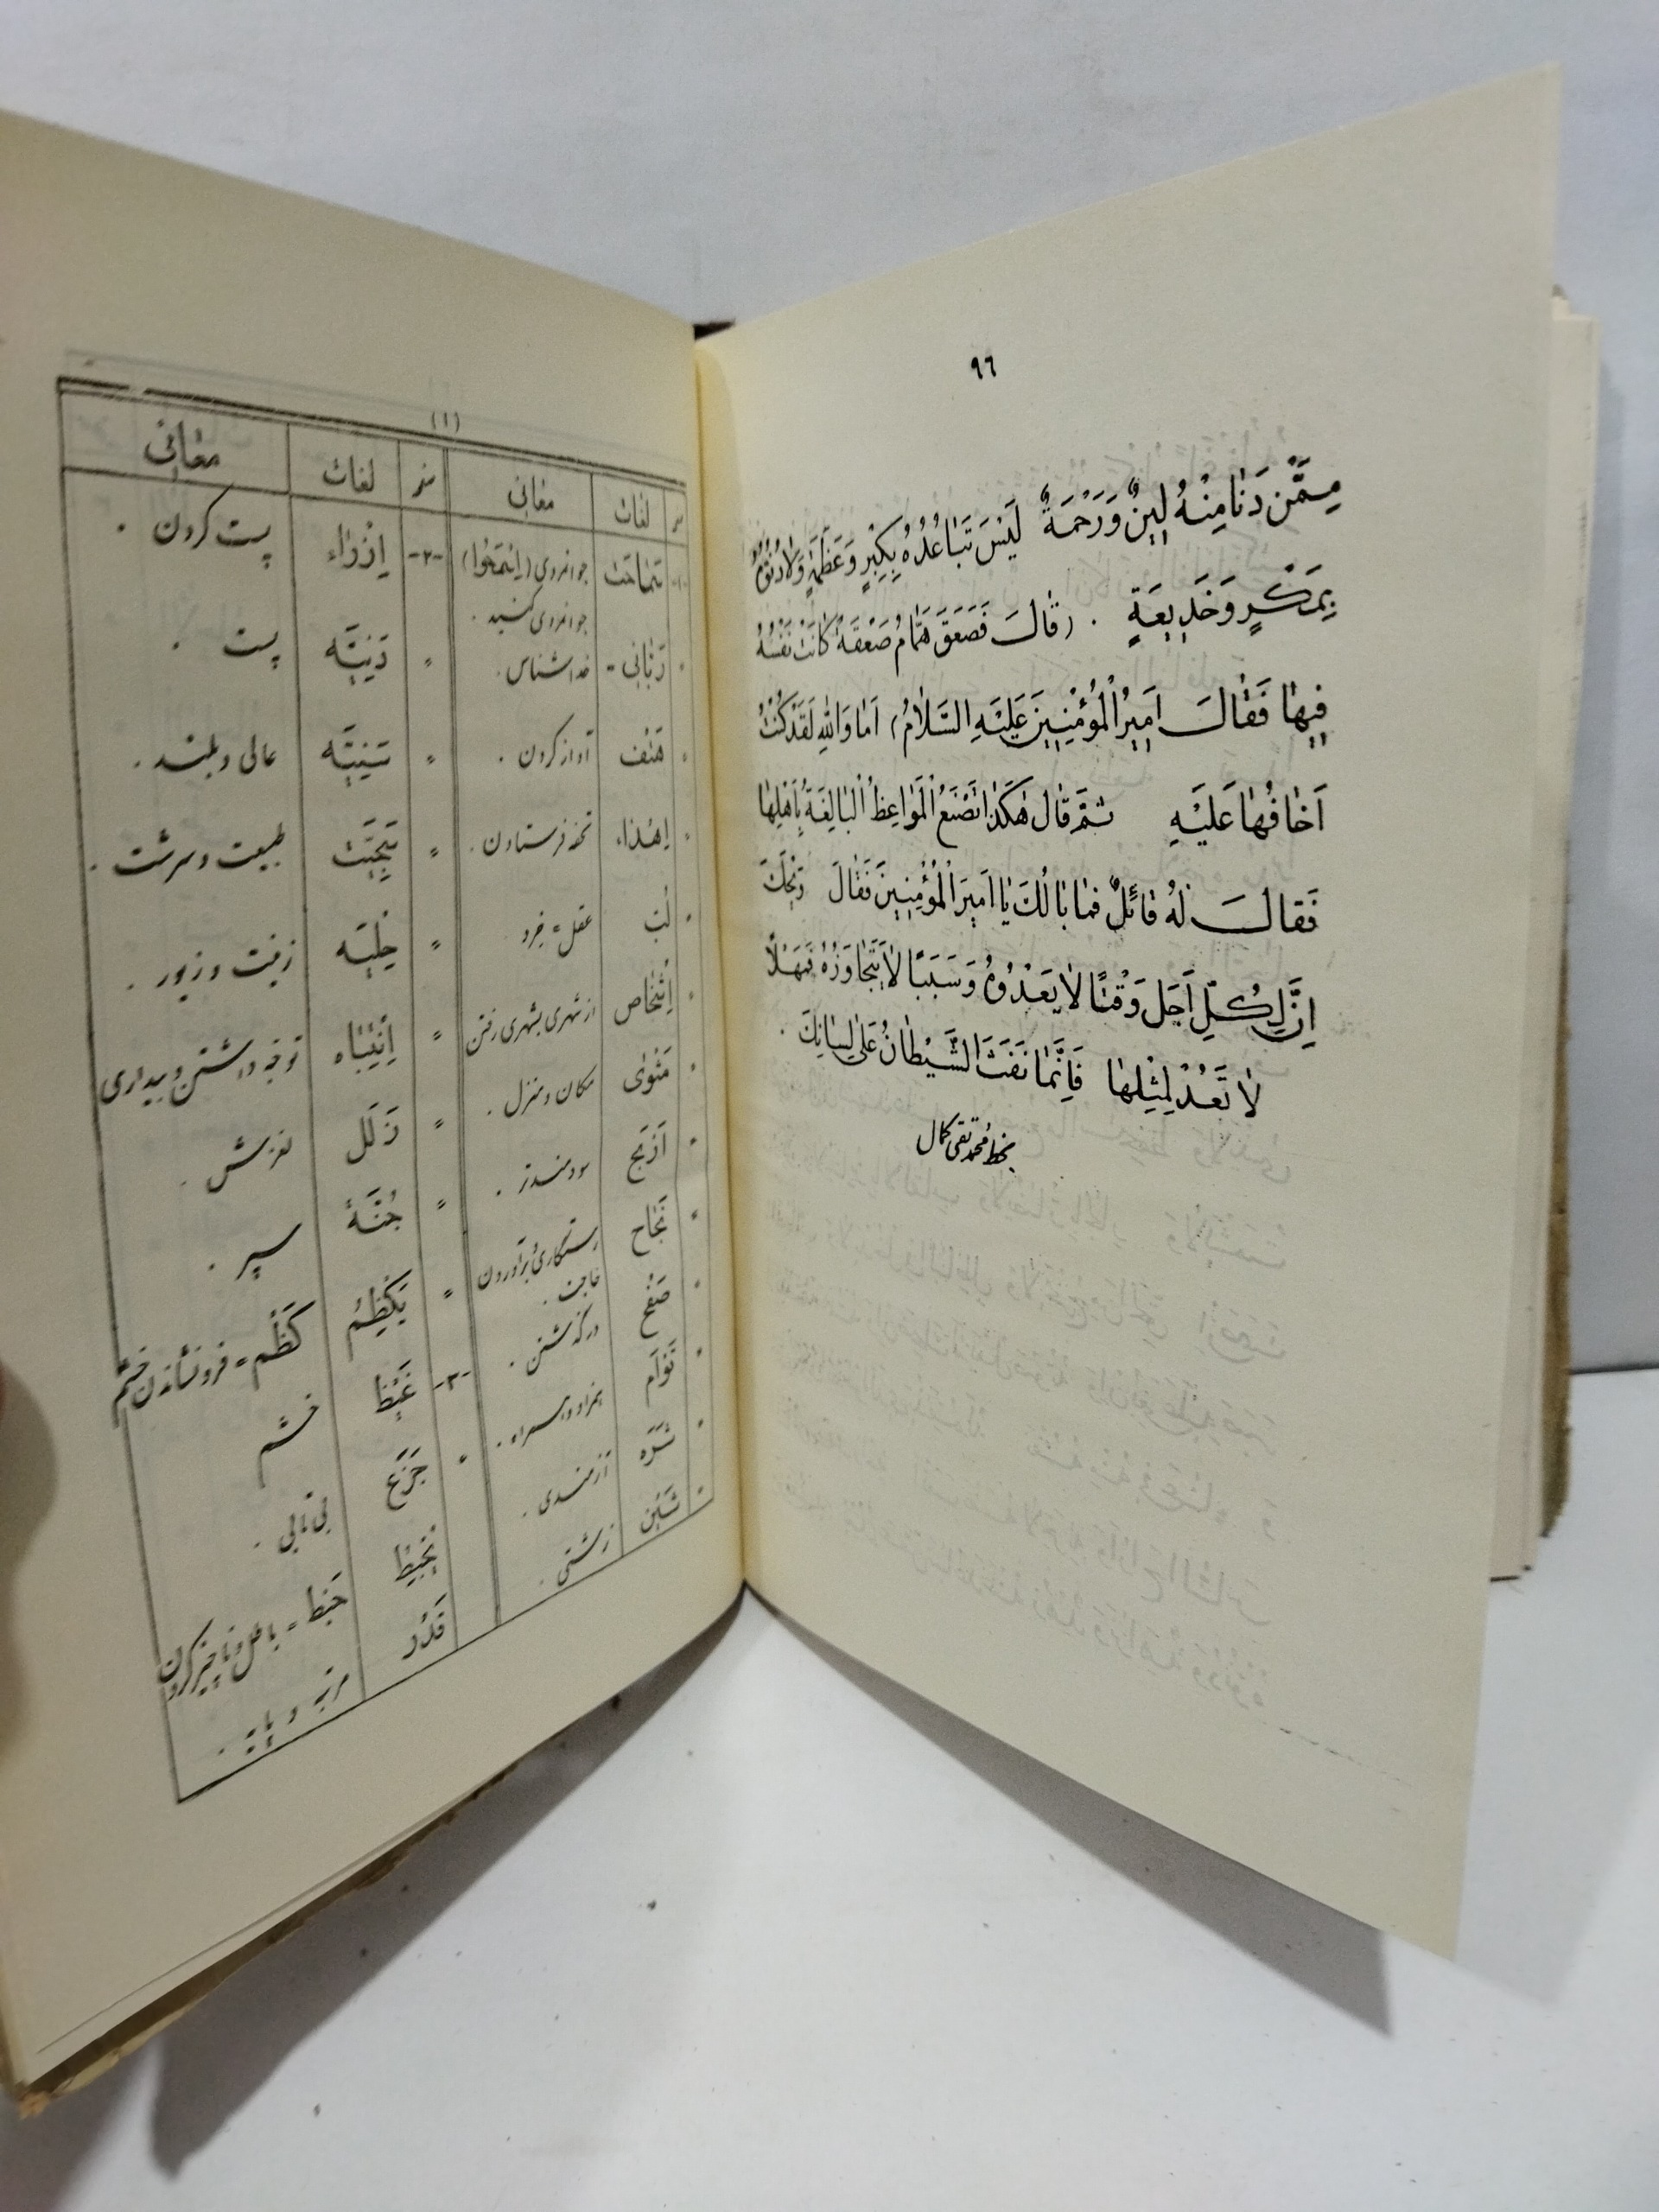 ٩٦
مِمَّن دَنٰا مِنْهُ لِينٌ وَرَحْمَةٌ لَيْسَ تَبٰاعُدُهُ بِكِبْرٍ وَعَظَمَةٍ وَلاٰ دُنُوُّهُ
بِمَكْرٍ وَخَدِيعَةٍ . (قٰالَ فَصَعِقَ هَمّٰامٌ صَعْقَةً كٰانَتْ نَفْسُهُ
فِيهٰا فَقٰالَ اَمِيرُ الْمُؤْمِنِينَ عَلَيْهِ السَّلاٰمُ) اَمٰا وَاللّٰهِ لَقَدْ كُنْتُ
اَخٰافُهٰا عَلَيْهِ ثُمَّ قٰالَ هٰكَذٰا تَصْنَعُ الْمَوٰاعِظُ الْبٰالِغَةُ بِاَهْلِهٰا
فَقٰالَ لَهُ قٰائِلٌ فَمٰا بٰالُكَ يٰا اَمِيرَ الْمُؤْمِنِينَ فَقٰالَ وَيْحَكَ
اِنَّ لِكُلِّ اَجَلٍ وَقْتًا لاٰ يَعْدُوهُ وَسَبَبًا لاٰ يَتَجٰاوَزُهُ فَمَهْلاً
لاٰ تَعُدْ لِمِثْلِهٰا فَاِنَّمٰا نَفَثَ الشَّيْطٰانُ عَلىٰ لِسٰانِكَ .
بخط محمد تقی کمال
(١)
لغات معانی لغات معانی
-١- سَمٰاحَت جوانمردی (اِسْمَحُوا) -٢- اِزْرٰاء پست کردن .
جوانمردی کنید .
رَبّٰانی - خداشناس . " دَنِيَّه پست .
هَتْف آواز کردن . " سَنِيَّه عالی و بلند .
اِهْدٰاء تحفه فرستادن . " سَجِيَّت طبیعت و سرشت .
لُبّ عقل = خرد " حِلْيَه زینت و زیور .
اِشْخٰاص از شهری بشهری رفتن " اِنْتِبٰاه توجه داشتن و بیداری
مَثْوٰی مکان و منزل . " زَلَل لغزش .
اَرْبَح سودمندتر . " جُنَّة سپر .
نَجٰاح رستگاری و برآوردن حاجت . " يَكْظِمُ کَظْم = فرو نشاندن خشم
صَفْح درگذشتن . -٣- غَيْظ خشم
تَوْأَم همزاد و همراه . " جَزَع بی تابی .
شَرَه آزمندی . يُحْبِطُ حَبْط = باطل و ناچیز کردن
شَيْن زشتی . قَدْر مرتبه و پایه .